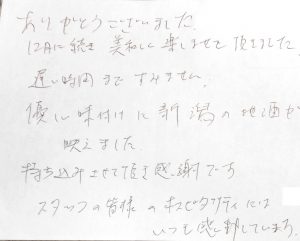 ありがとうございました
12月に続き 美和しく 楽しませて頂きました。
遅い時間まで すみません。
優しい味付けに 新潟の地酒が
映えました。
持ち込みさせて頂き感謝です
スタッフの皆様のホスピタリティには
いつも感動しています。